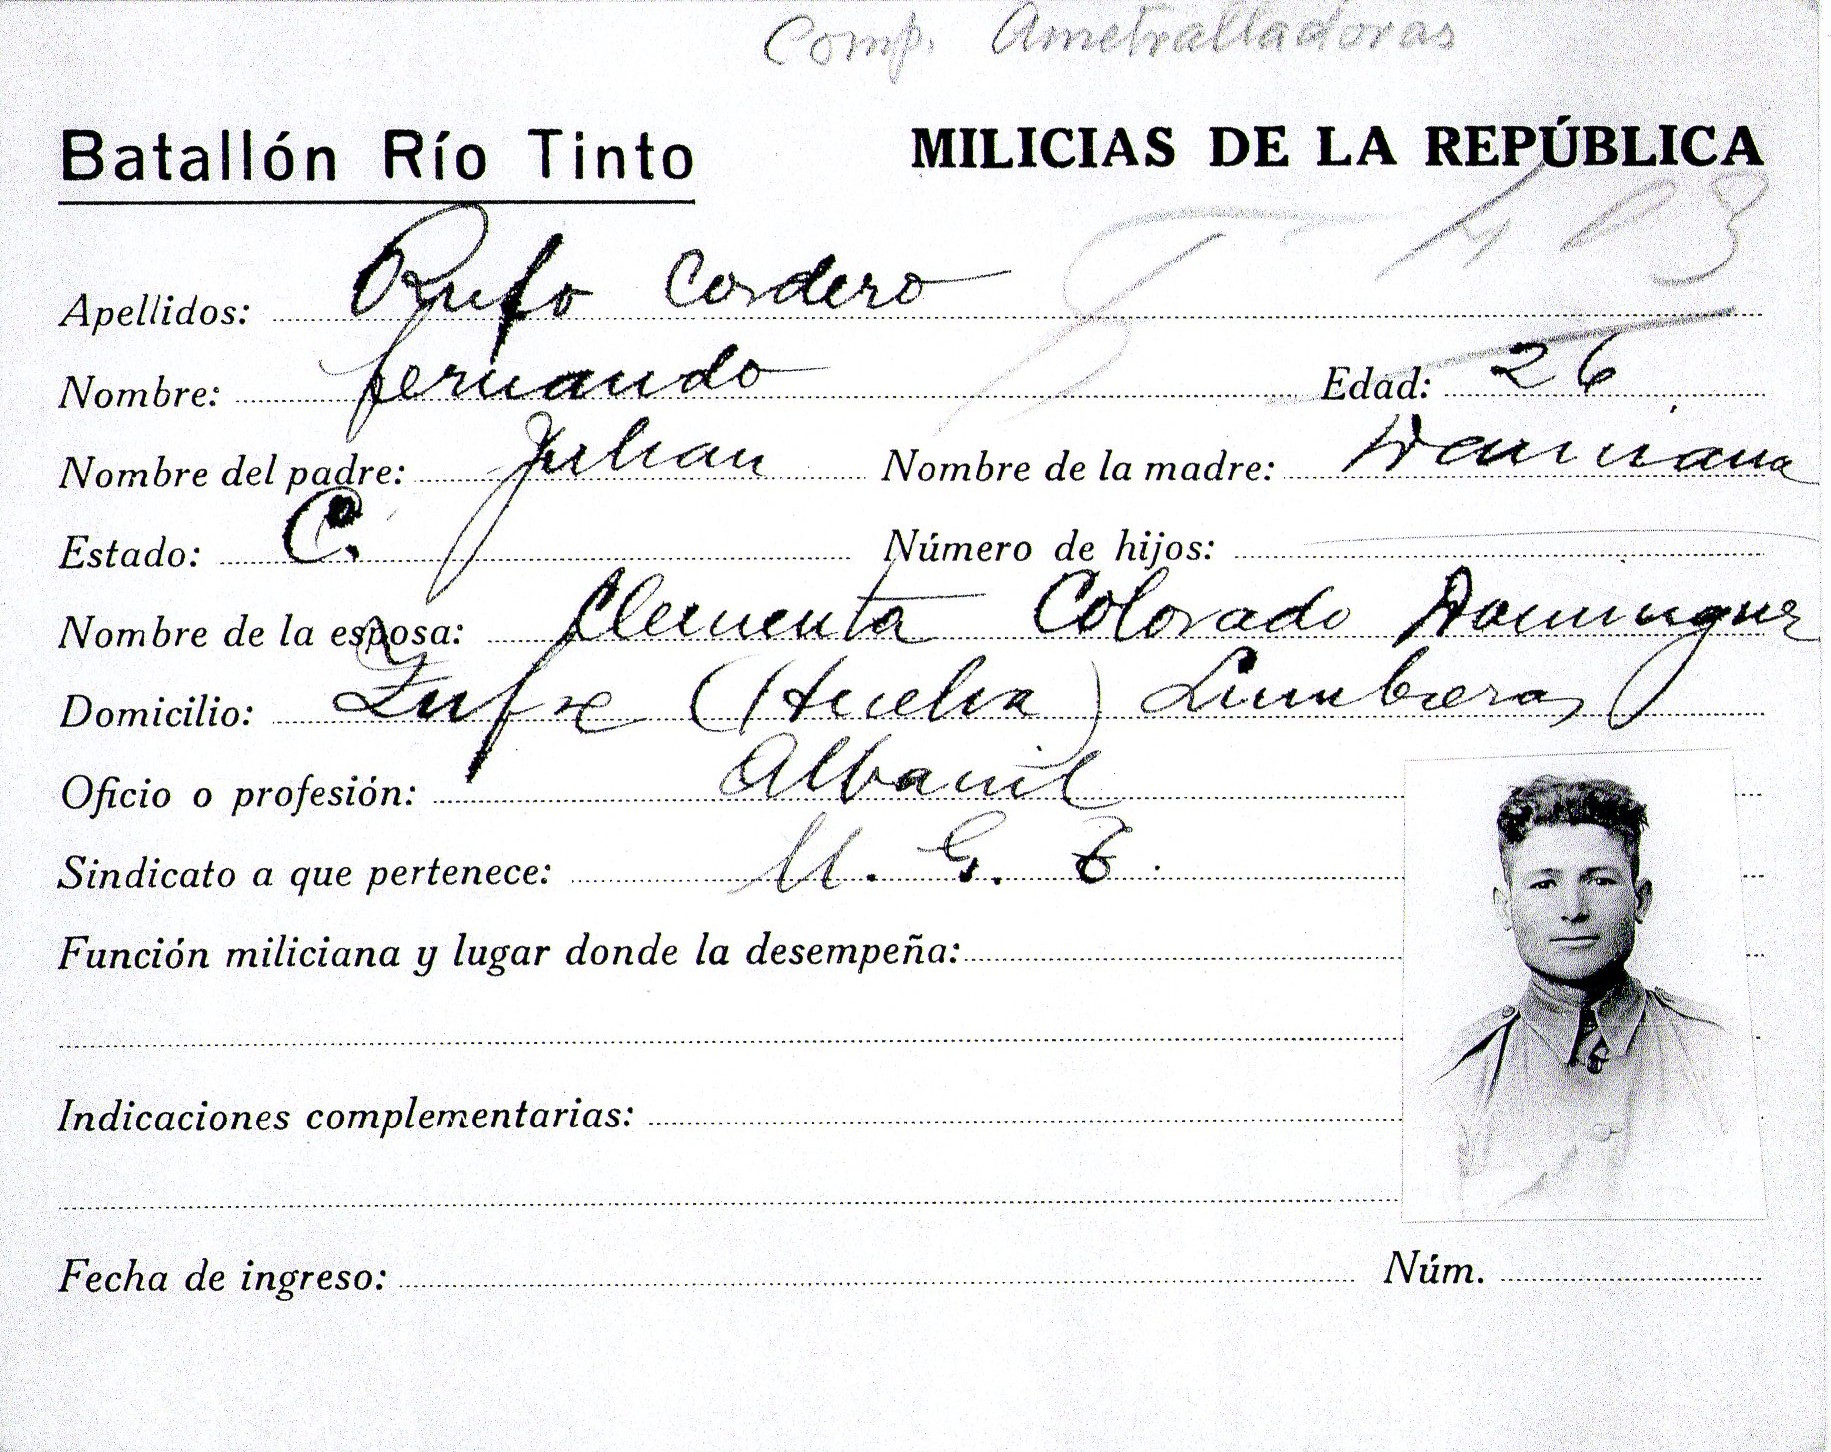 Comp. Ametralladoras
Batallón Río Tinto MILICIAS DE LA REPÚBLICA
Apellidos: Rufo Cordero
Nombre: fernando Edad: 26
Nombre del padre: Julian Nombre de la madre: Damiana
Estado: C. Número de hijos:
Nombre de la esposa: Clementa Colorado Dominguez
Domicilio: Zufre (Huelva) Lumbreras
Oficio o profesión: Albanil
Sindicato a que pertenece: U. G. T.
Función miliciana y lugar donde la desempeña:
Indicaciones complementarias:
Fecha de ingreso: Núm.